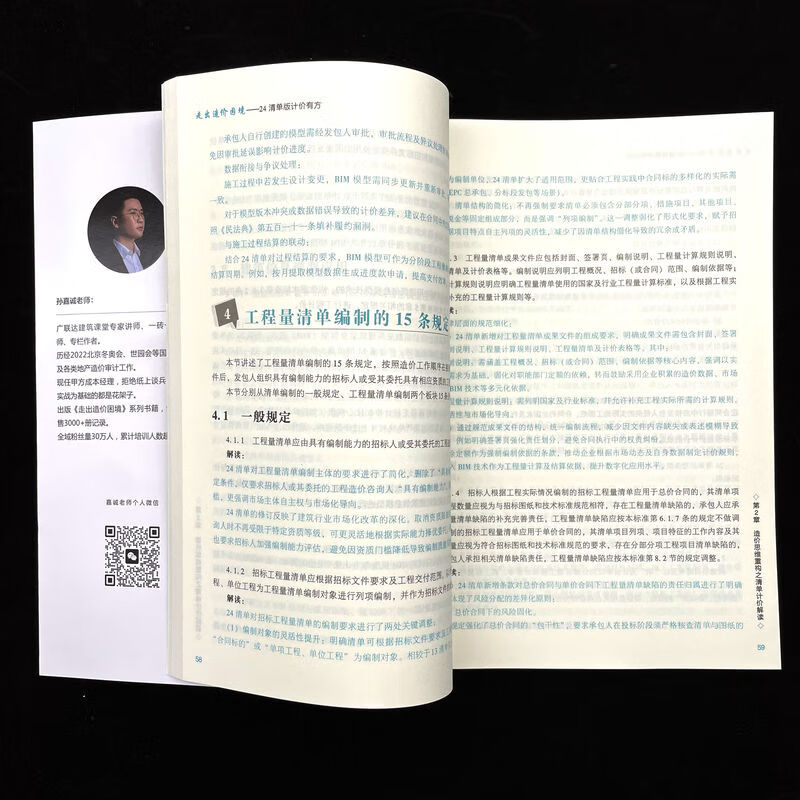 孙嘉诚老师：
广联达建筑课堂专家讲师，一砖
师，专栏作者。
历经2022北京冬奥会、世园会等国
及各类地产造价审计工作。
现任甲方成本经理，拒绝纸上谈兵
实战为基础的都是花架子。
出版《走出造价困境》系列书籍，
售3000+册记录。
全域粉丝量30万人，累计培训人数超
嘉诚老师个人微信
走出造价困境——24 清单版计价有方
承包人自行创建的模型需经发包人审批，审批流程及异议处理
免因审批延误影响计价进度。
数据衔接与争议处理：
施工过程中若发生设计变更，BIM 模型需同步更新并重新
一致。
对于模型版本冲突或数据错误导致的计价差异，建议在合同中
照《民法典》第五百一十一条填补履约漏洞。
与施工过程结算的联动：
结合 24 清单对过程结算的要求，BIM 模型可作为分阶段工程
结算周期。例如，按月提取模型数据生成进度款申请，提高支付效
4 工程量清单编制的 15 条规定
本节讲述了工程量清单编制的 15 条规定，按照造价工作顺序在
件后，发包人组织具有编制能力的招标人或受其委托具有相应资质的
本节分别从清单编制的一般规定、工程量清单编制两个板块 15 条
4.1 一般规定
4.1.1 工程量清单应由具有编制能力的招标人或受其委托的工程
解读：
24 清单对工程量清单编制主体的要求进行了简化，删除了“具
定条件，仅要求招标人或其委托的工程造价咨询人“具有编制能力”
槛，更强调市场主体自主权与市场化导向。
24 清单的修订反映了建筑行业市场化改革的深化，取消资质
询人时不再受限于特定资质等级，可更灵活地根据实际能力择优委托
也要求招标人加强编制能力评估，避免因资质门槛降低导致编制质量
4.1.2 招标工程量清单应根据招标文件要求及工程交付范围，以
程、单位工程为工程量清单编制对象进行列项编制，并作为招标文件的
解读：
24 清单对招标工程量清单的编制要求进行了两处关键调整：
（1）编制对象的灵活性提升：明确清单可根据招标文件要求及工
“合同标的”或“单项工程、单位工程”为编制对象。相较于 13 清单
58
与编制单位，24 清单扩大了适用范围，更贴合工程实践中合同标的多样化的实际需
EPC 总承包、分标段发包等场景）。
清单结构的简化：不再强制要求清单必须包含分部分项、措施项目、其他项目、
税金等固定组成部分，而是强调“列项编制”。这一调整弱化了形式化要求，赋予招
据项目特点自主列项的灵活性，减少了因清单结构僵化导致的冗余或矛盾。
.3 工程量清单成果文件应包括封面、签署页、编制说明、工程量计算规则说明、
清单及计价表格等。编制说明应列明工程概况、招标（或合同）范围、编制依据等；
计算规则说明应明确工程量清单使用的国家及行业工程量计算标准，以及根据工程实
补充的工程量计算规则等。
读：
层面的规范细化：
24 清单新增对工程量清单成果文件的组成要求，明确成果文件需包含封面、签署
制说明、工程量计算规则说明、工程量清单及计价表格等。
说明：需涵盖工程概况、招标（或合同）范围、编制依据等核心内容，强调以实
需求为基础，弱化对职能部门定额的依赖，转而鼓励采用企业积累的造价数据、市场
BIM 技术等多元化依据。
程量计算规则说明：需列明国家及行业标准，并允许补充工程实际所需的计算规则，
活性与市场化导向。
通过规范成果文件的结构，统一编制流程，减少因文件内容缺失或表述模糊导致
例如明确编制签署页强化责任划分，避免合同执行中的权责纠纷。
定额作为强制编制依据的条款，推动企业根据市场动态及自身数据制定计价规则，
BIM 技术作为工程量计算及结算依据，提升数字化应用水平。
.4 招标人根据工程实际情况编制的招标工程量清单应用于总价合同的，其清单项
程数量应视为与招标图纸和技术标准规范相符，存在工程量清单缺陷的，承包人应承
量清单缺陷的补充完善责任，工程量清单缺陷应按本标准第 6.1.7 条的规定不做调
制的招标工程量清单应用于单价合同的，其清单项目列项、项目特征的工作内容及其
量应视为符合招标图纸和技术标准规范的要求，存在分部分项工程项目清单缺陷的，
包人承担相关清单缺陷责任，工程量清单缺陷应按本标准第 8.2 节的规定调整。
读：
清单新增条款对总价合同与单价合同下工程量清单缺陷的责任归属进行了明确
现了风险分配的差异化原则：
总价合同下的风险固化。
规定强化了总价合同的“包干性”，要求承包人在投标阶段须严格核查清单与图纸的
◇第 2 章 造价思维重构之清单计价解读◇
59